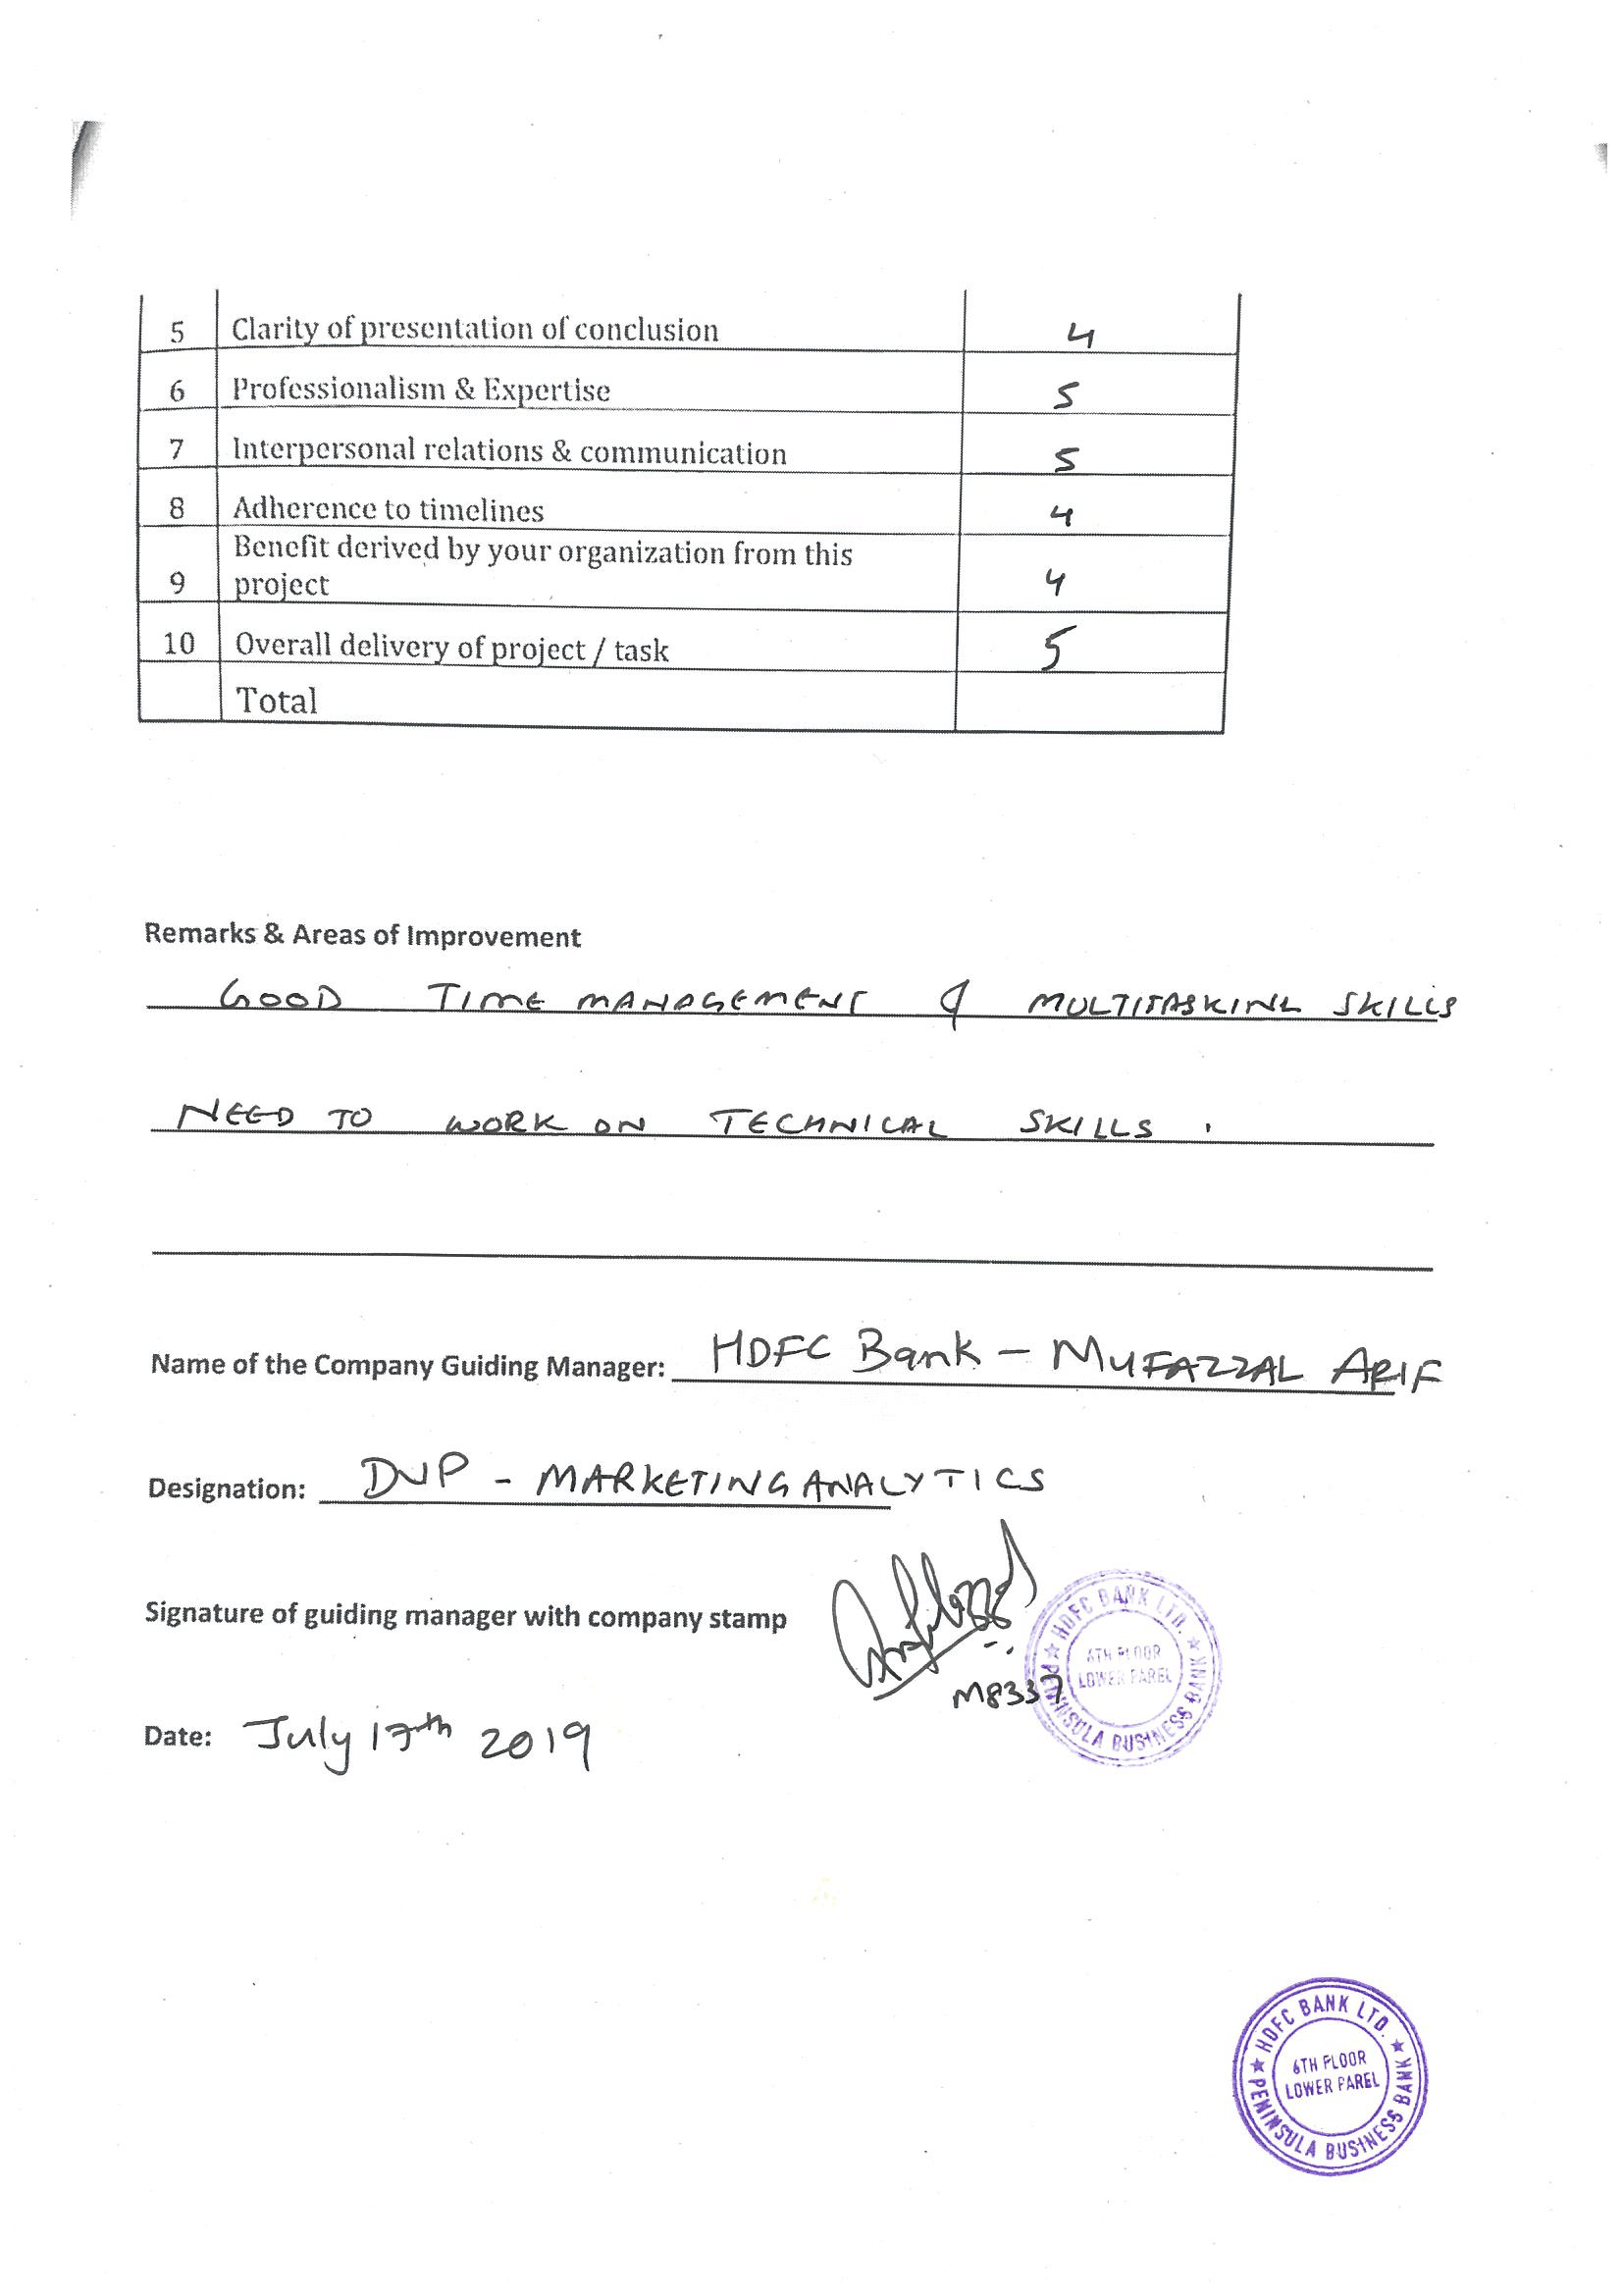 5 Clarity of presentation of conclusion 4
6 Professionalism & Expertise 5
7 Interpersonal relations & communication 5
8 Adherence to timelines 4
Benefit derived by your organization from this
9 project 4
10 Overall delivery of project / task 5
Total
Remarks & Areas of Improvement
GOOD TIME MANAGEMENT & MULTITASKING SKILLS
NEED TO WORK ON TECHNICAL SKILLS .
Name of the Company Guiding Manager: HDFC Bank - MUFAZZAL ARIF
Designation: DVP - MARKETING ANALYTICS
Signature of guiding manager with company stamp
M8337
HDFC BANK LTD.
6TH FLOOR
LOWER PAREL
PENINSULA BUSINESS BANK
Date: July 17th 2019
HDFC BANK LTD.
6TH FLOOR
LOWER PAREL
PENINSULA BUSINESS BANK